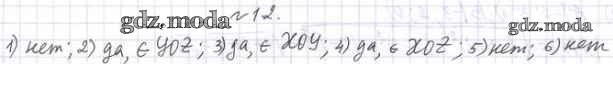 gdz.moda
№12.
gdz.moda
1) нет; 2) да, ∈ YOZ; 3) да, ∈ XOY; 4) да, ∈ XOZ; 5) нет; 6) нет